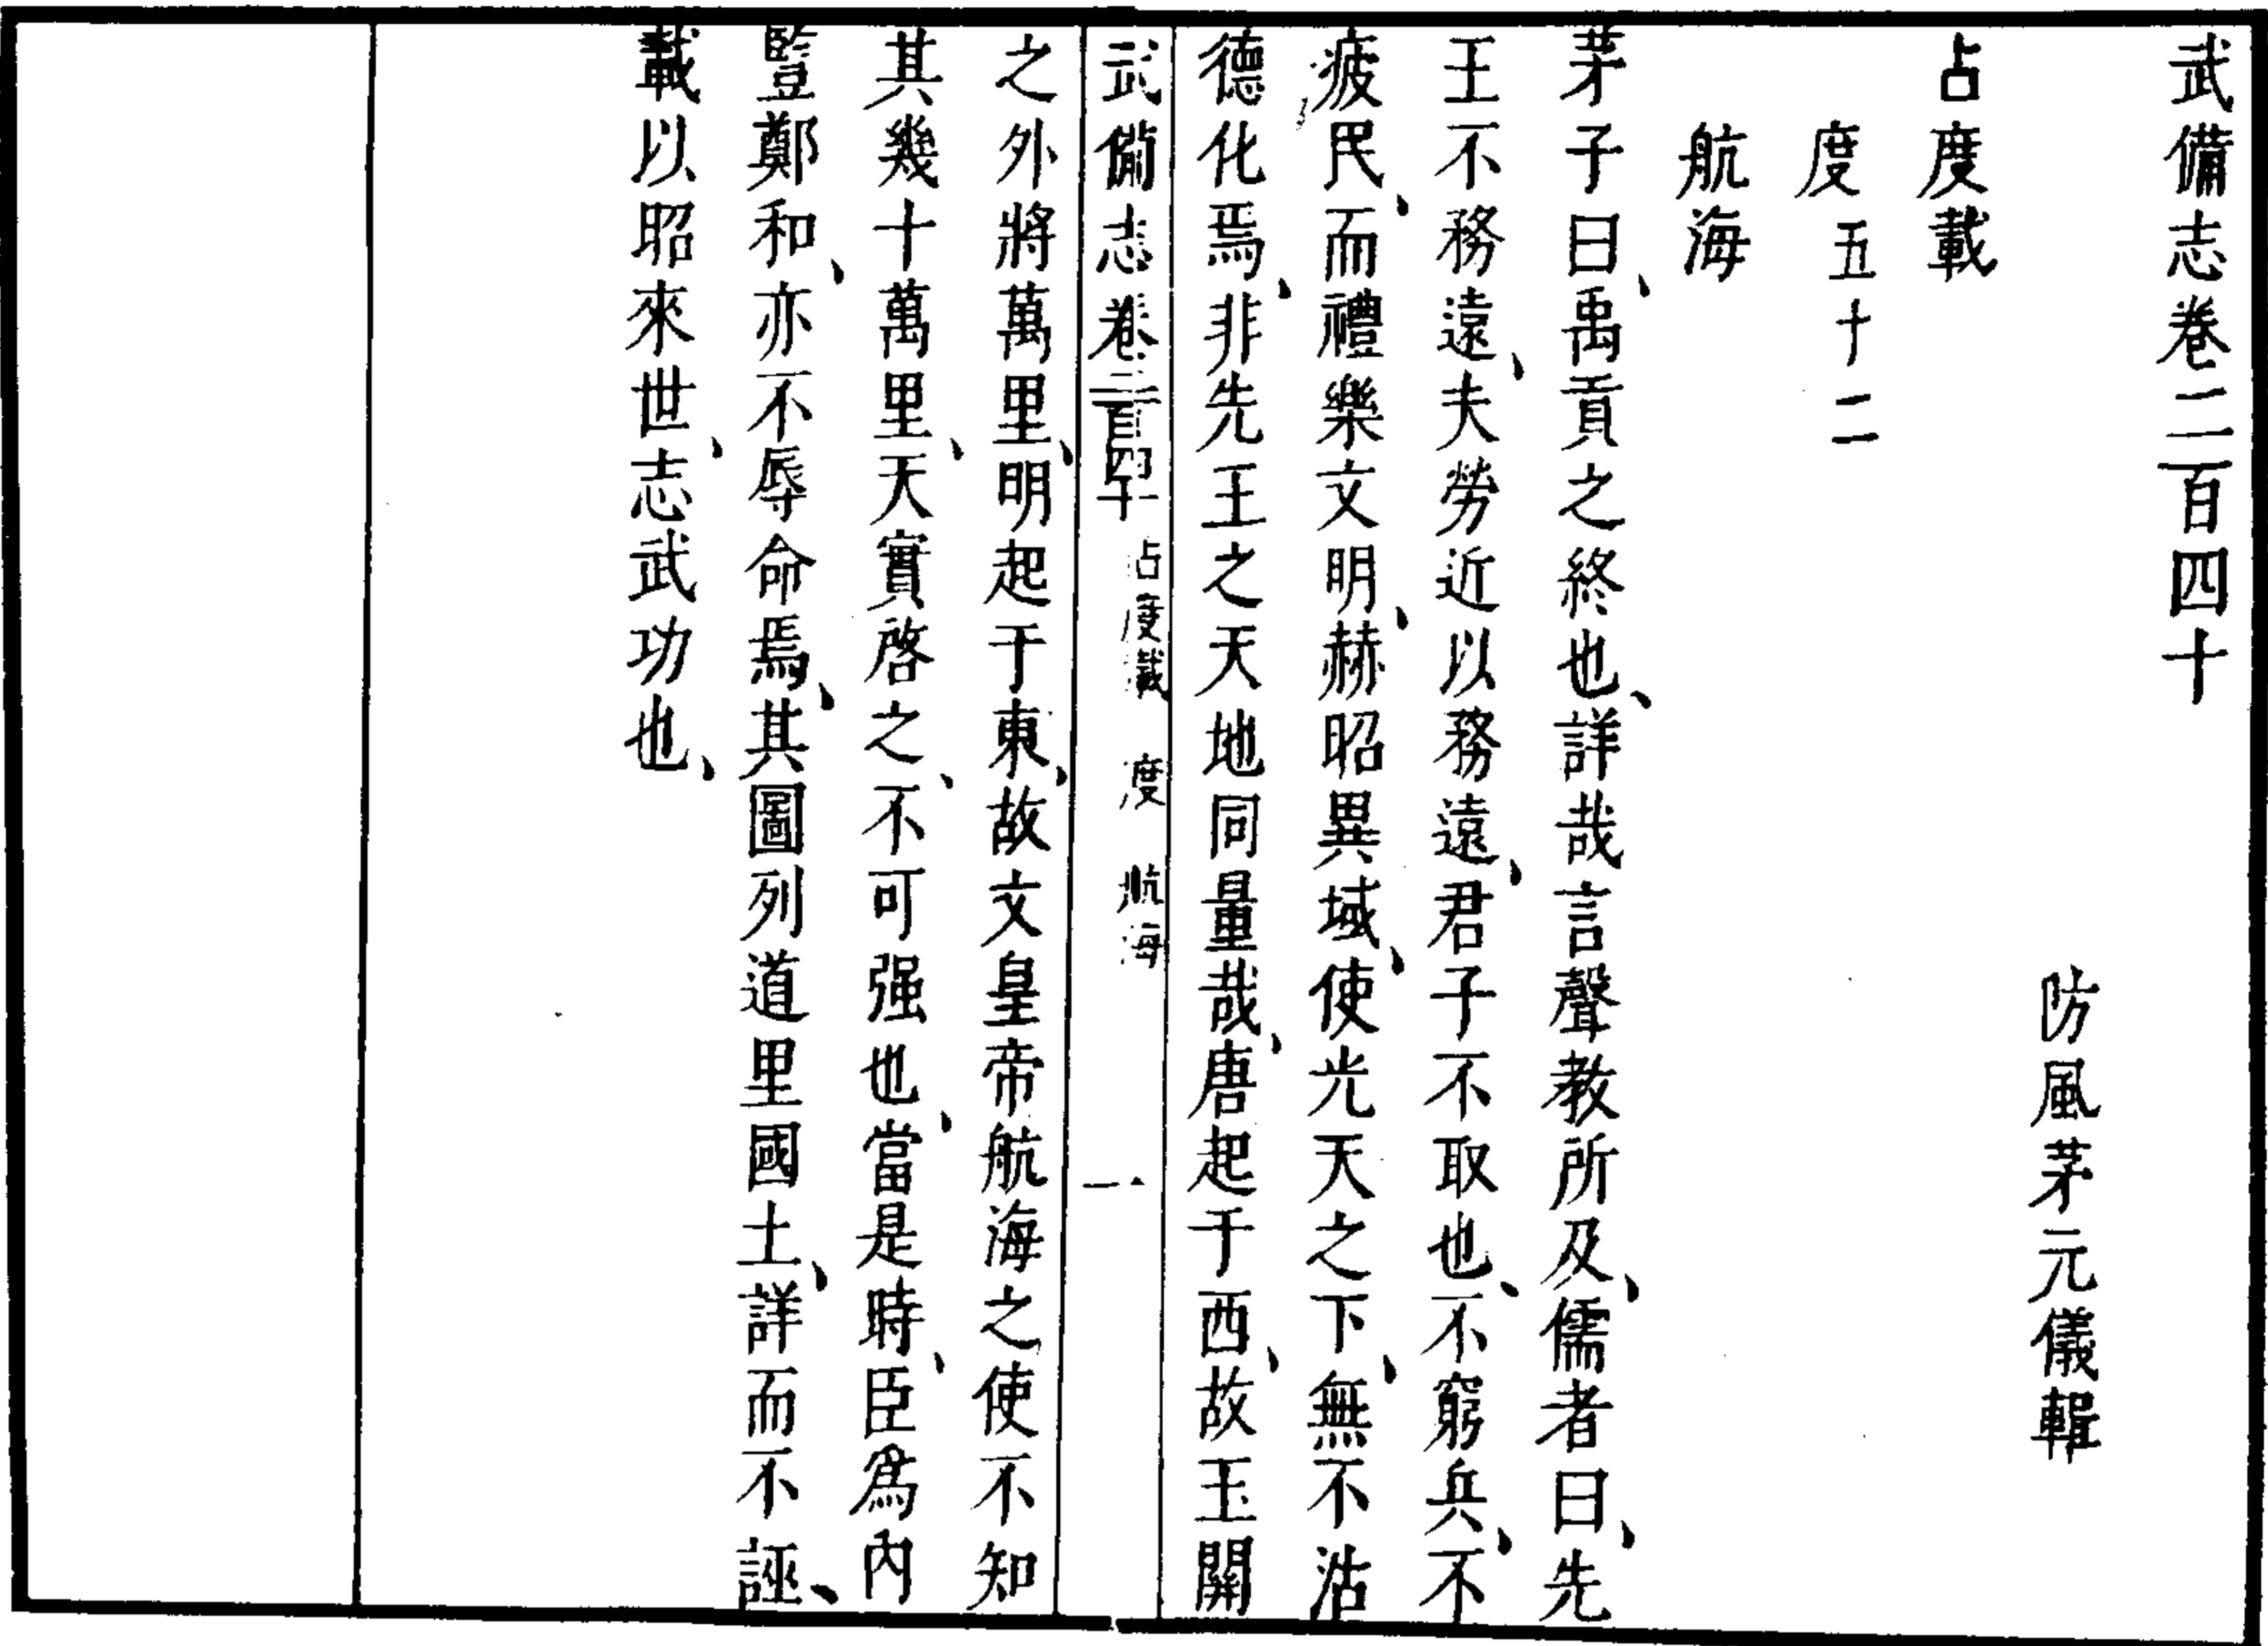 武備志卷二百四十
防風茅元儀輯
占度載
度五十二
航海
茅子曰、禹貢之終也、詳哉言聲教所及、儒者曰、先
王不務遠、夫勞近以務遠、君子不取也、不窮兵、不
疲民、而禮樂文明、赫昭異域、使光天之下、無不沾
德化焉、非先王之天地同量哉、唐起于西、故玉關
武備志卷二百四十 占度載 度 航海 一
之外將萬里、明起于東、故文皇帝航海之使不知
其幾十萬里、天實啓之、不可强也、當是時、臣爲內
豎鄭和、亦不辱命焉、其圖列道里國土、詳而不誣、
載以昭來世、志武功也、